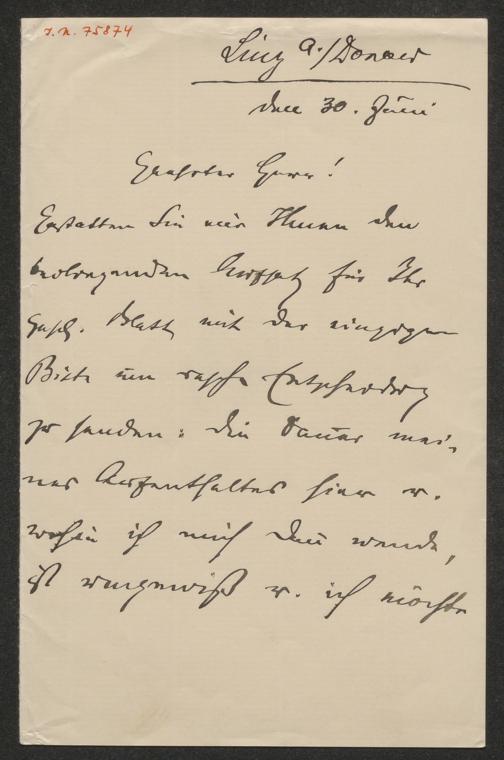 I.N. 75874
Linz a./Donau
den 30. Juni
Geehrter Herr!
Gestatten Sie mir Ihnen den
beiliegenden Aufsatz für Ihr
gesch. Blatt mit der einzigen
Bitte um rasche Entscheidung
zu senden: die Dauer mei-
nes Aufenthaltes hier u.
wohin ich mich dann wende,
ist ungewiß u. ich möchte